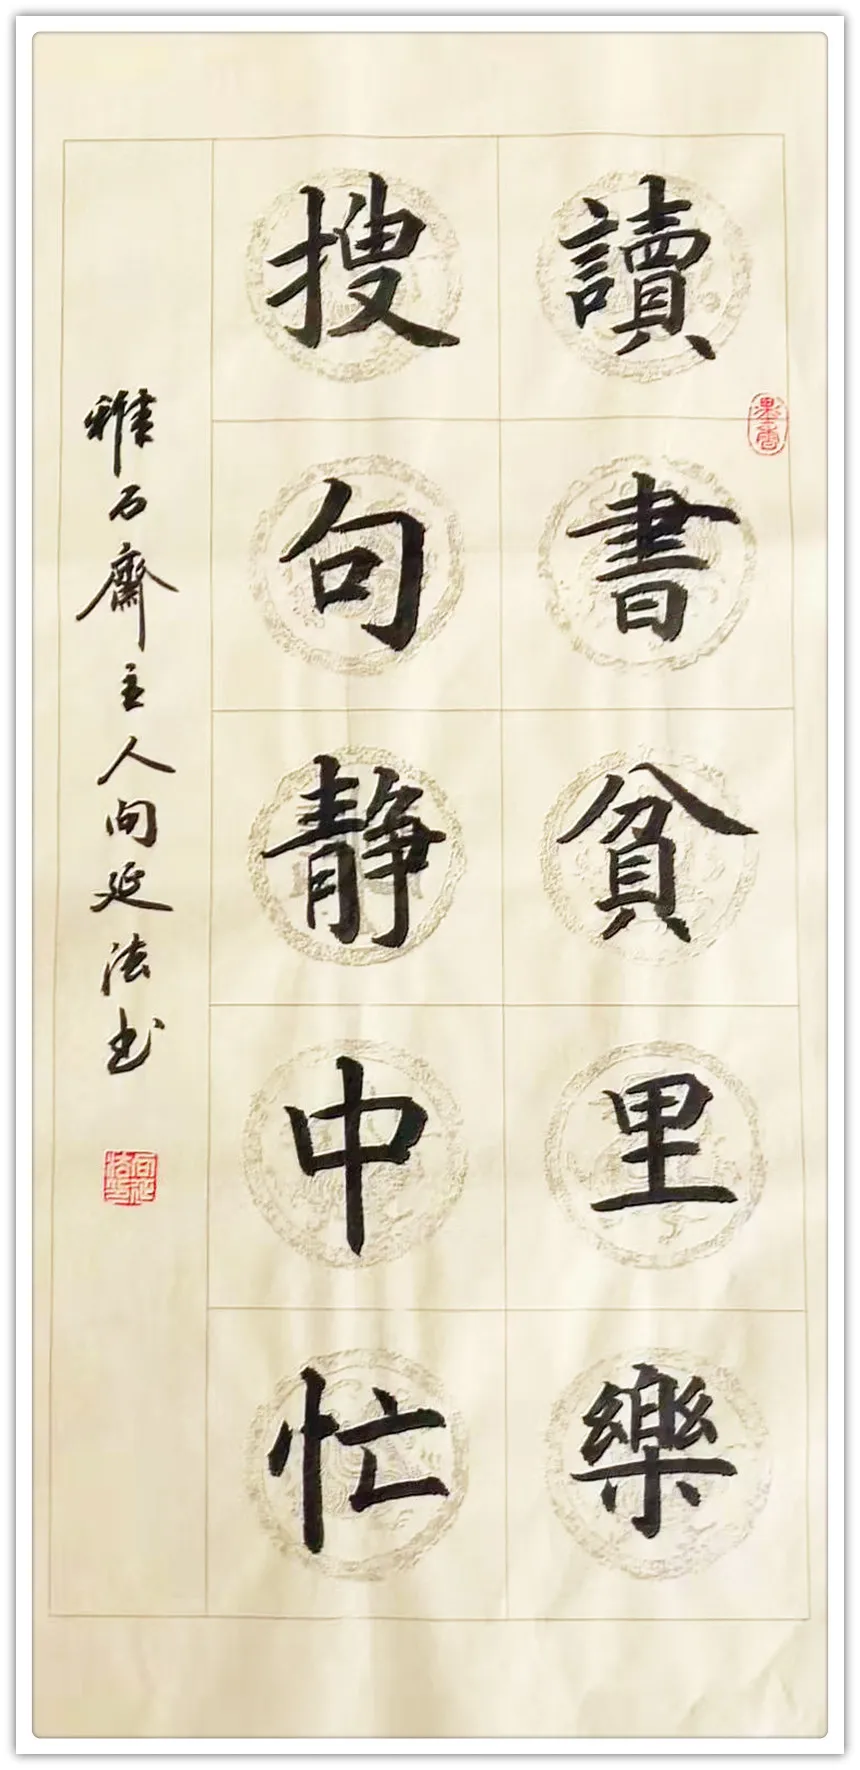 讀書貧里樂
搜句静中忙
雅石齋主人向延法书
墨香
向延法印